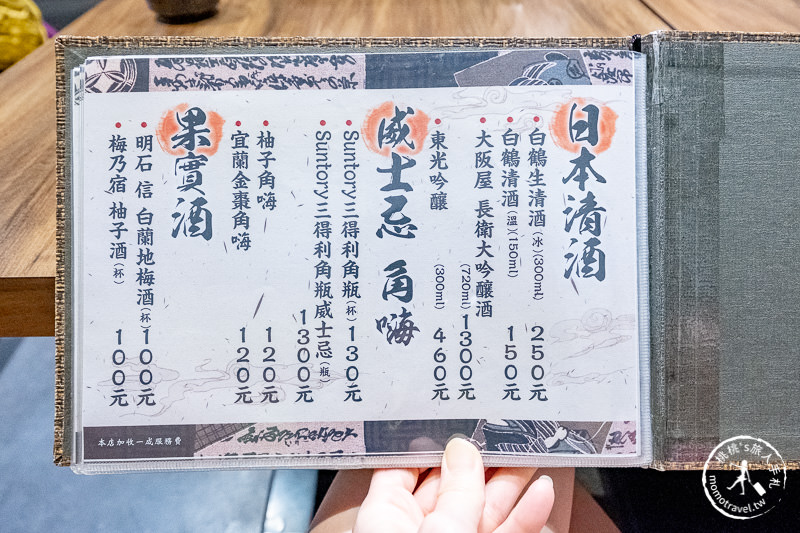 日本清酒
白鶴生清酒(冰)(300ml) 250元
白鶴清酒(溫)(150ml) 150元
大阪屋 長衛大吟釀酒(720ml) 1300元
東光吟釀(300ml) 460元
威士忌 角嗨
Suntory 三得利角瓶(杯) 130元
Suntory 三得利角瓶威士忌(瓶) 1300元
柚子角嗨 120元
宜蘭金棗角嗨 120元
果實酒
明石 信 白蘭地梅酒(杯) 100元
梅乃宿 柚子酒(杯) 100元
本店加收一成服務費
桃桃's旅人手札
momotravel.tw